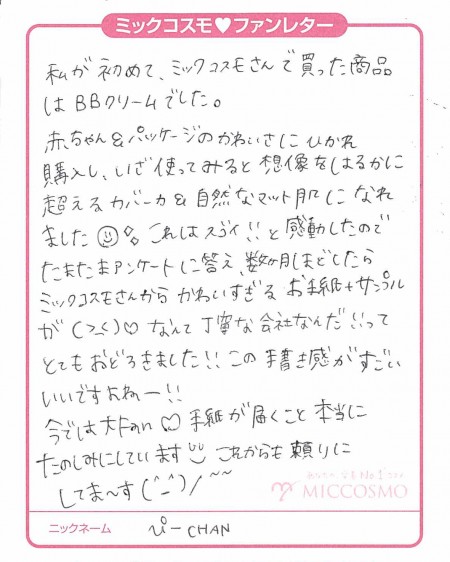 ミックコスモ♥ファンレター
私が初めて、ミックコスモさんで買った商品
はBBクリームでした。
赤ちゃん&パッケージのかわいさにひかれ
購入し、いざ使ってみると想像をはるかに
超えるカバー力&自然なマット肌になれ
ました これはスゴイ!!と感動したので
たまたまアンケートに答え、数ヶ月ほどしたら
ミックコスモさんからかわいすぎるお手紙+サンプル
が(>_<)♡なんて丁寧な会社なんだ!!って
とてもおどろきました!!この手書き感がすごい
いいですよねー!!
今では大Fan♡手紙が届くこと本当に
たのしみにしています これからも頼りに
してま〜す(^_^)/~~
MICCOSMO
ニックネーム ぴーCHAN